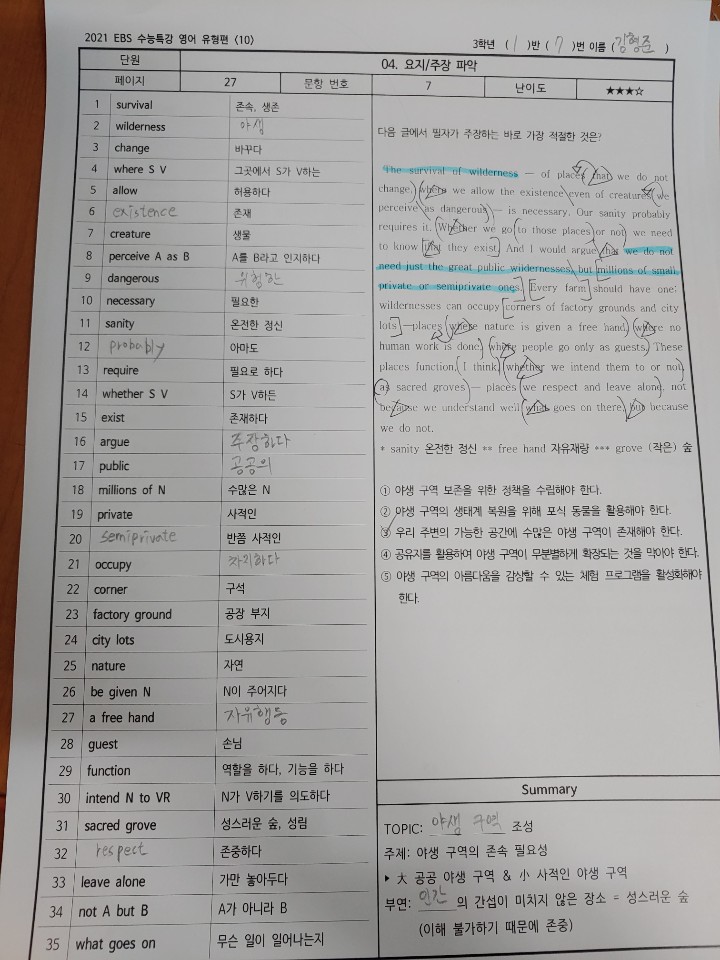 2021 EBS 수능특강 영어 유형편 <10>
3학년 ( 1 )반 ( 7 )번 이름 ( 강형준 )
단원 04. 요지/주장 파악
페이지 27 문항 번호 7 난이도 ★★★☆
1 survival 존속, 생존
2 wilderness 야생
3 change 바꾸다
4 where S V 그곳에서 S가 V하는
5 allow 허용하다
6 existence 존재
7 creature 생물
8 perceive A as B A를 B라고 인지하다
9 dangerous 위험한
10 necessary 필요한
11 sanity 온전한 정신
12 probably 아마도
13 require 필요로 하다
14 whether S V S가 V하든
15 exist 존재하다
16 argue 주장하다
17 public 공공의
18 millions of N 수많은 N
19 private 사적인
20 semiprivate 반쯤 사적인
21 occupy 차지하다
22 corner 구석
23 factory ground 공장 부지
24 city lots 도시용지
25 nature 자연
26 be given N N이 주어지다
27 a free hand 자유행동
28 guest 손님
29 function 역할을 하다, 기능을 하다
30 intend N to VR N가 V하기를 의도하다
31 sacred grove 성스러운 숲, 성림
32 respect 존중하다
33 leave alone 가만 놓아두다
34 not A but B A가 아니라 B
35 what goes on 무슨 일이 일어나는지
다음 글에서 필자가 주장하는 바로 가장 적절한 것은?
The survival of wilderness — of places that we do not
change, where we allow the existence even of creatures we
perceive as dangerous — is necessary. Our sanity probably
requires it. Whether we go to those places or not, we need
to know that they exist. And I would argue that we do not
need just the great public wildernesses, but millions of small
private or semiprivate ones. Every farm should have one;
wildernesses can occupy corners of factory grounds and city
lots — places where nature is given a free hand, where no
human work is done, where people go only as guests. These
places function, I think, whether we intend them to or not,
as sacred groves — places we respect and leave alone, not
because we understand well what goes on there, but because
we do not.
* sanity 온전한 정신 ** free hand 자유재량 *** grove (작은) 숲
① 야생 구역 보존을 위한 정책을 수립해야 한다.
② 야생 구역의 생태계 복원을 위해 포식 동물을 활용해야 한다.
③ 우리 주변의 가능한 공간에 수많은 야생 구역이 존재해야 한다.
④ 공유지를 활용하여 야생 구역이 무분별하게 확장되는 것을 막아야 한다.
⑤ 야생 구역의 아름다움을 감상할 수 있는 체험 프로그램을 활성화해야
한다.
Summary
TOPIC: 야생 구역 조성
주제: 야생 구역의 존속 필요성
▸ 大 공공 야생 구역 & 小 사적인 야생 구역
부연: 인간 의 간섭이 미치지 않은 장소 = 성스러운 숲
(이해 불가하기 때문에 존중)